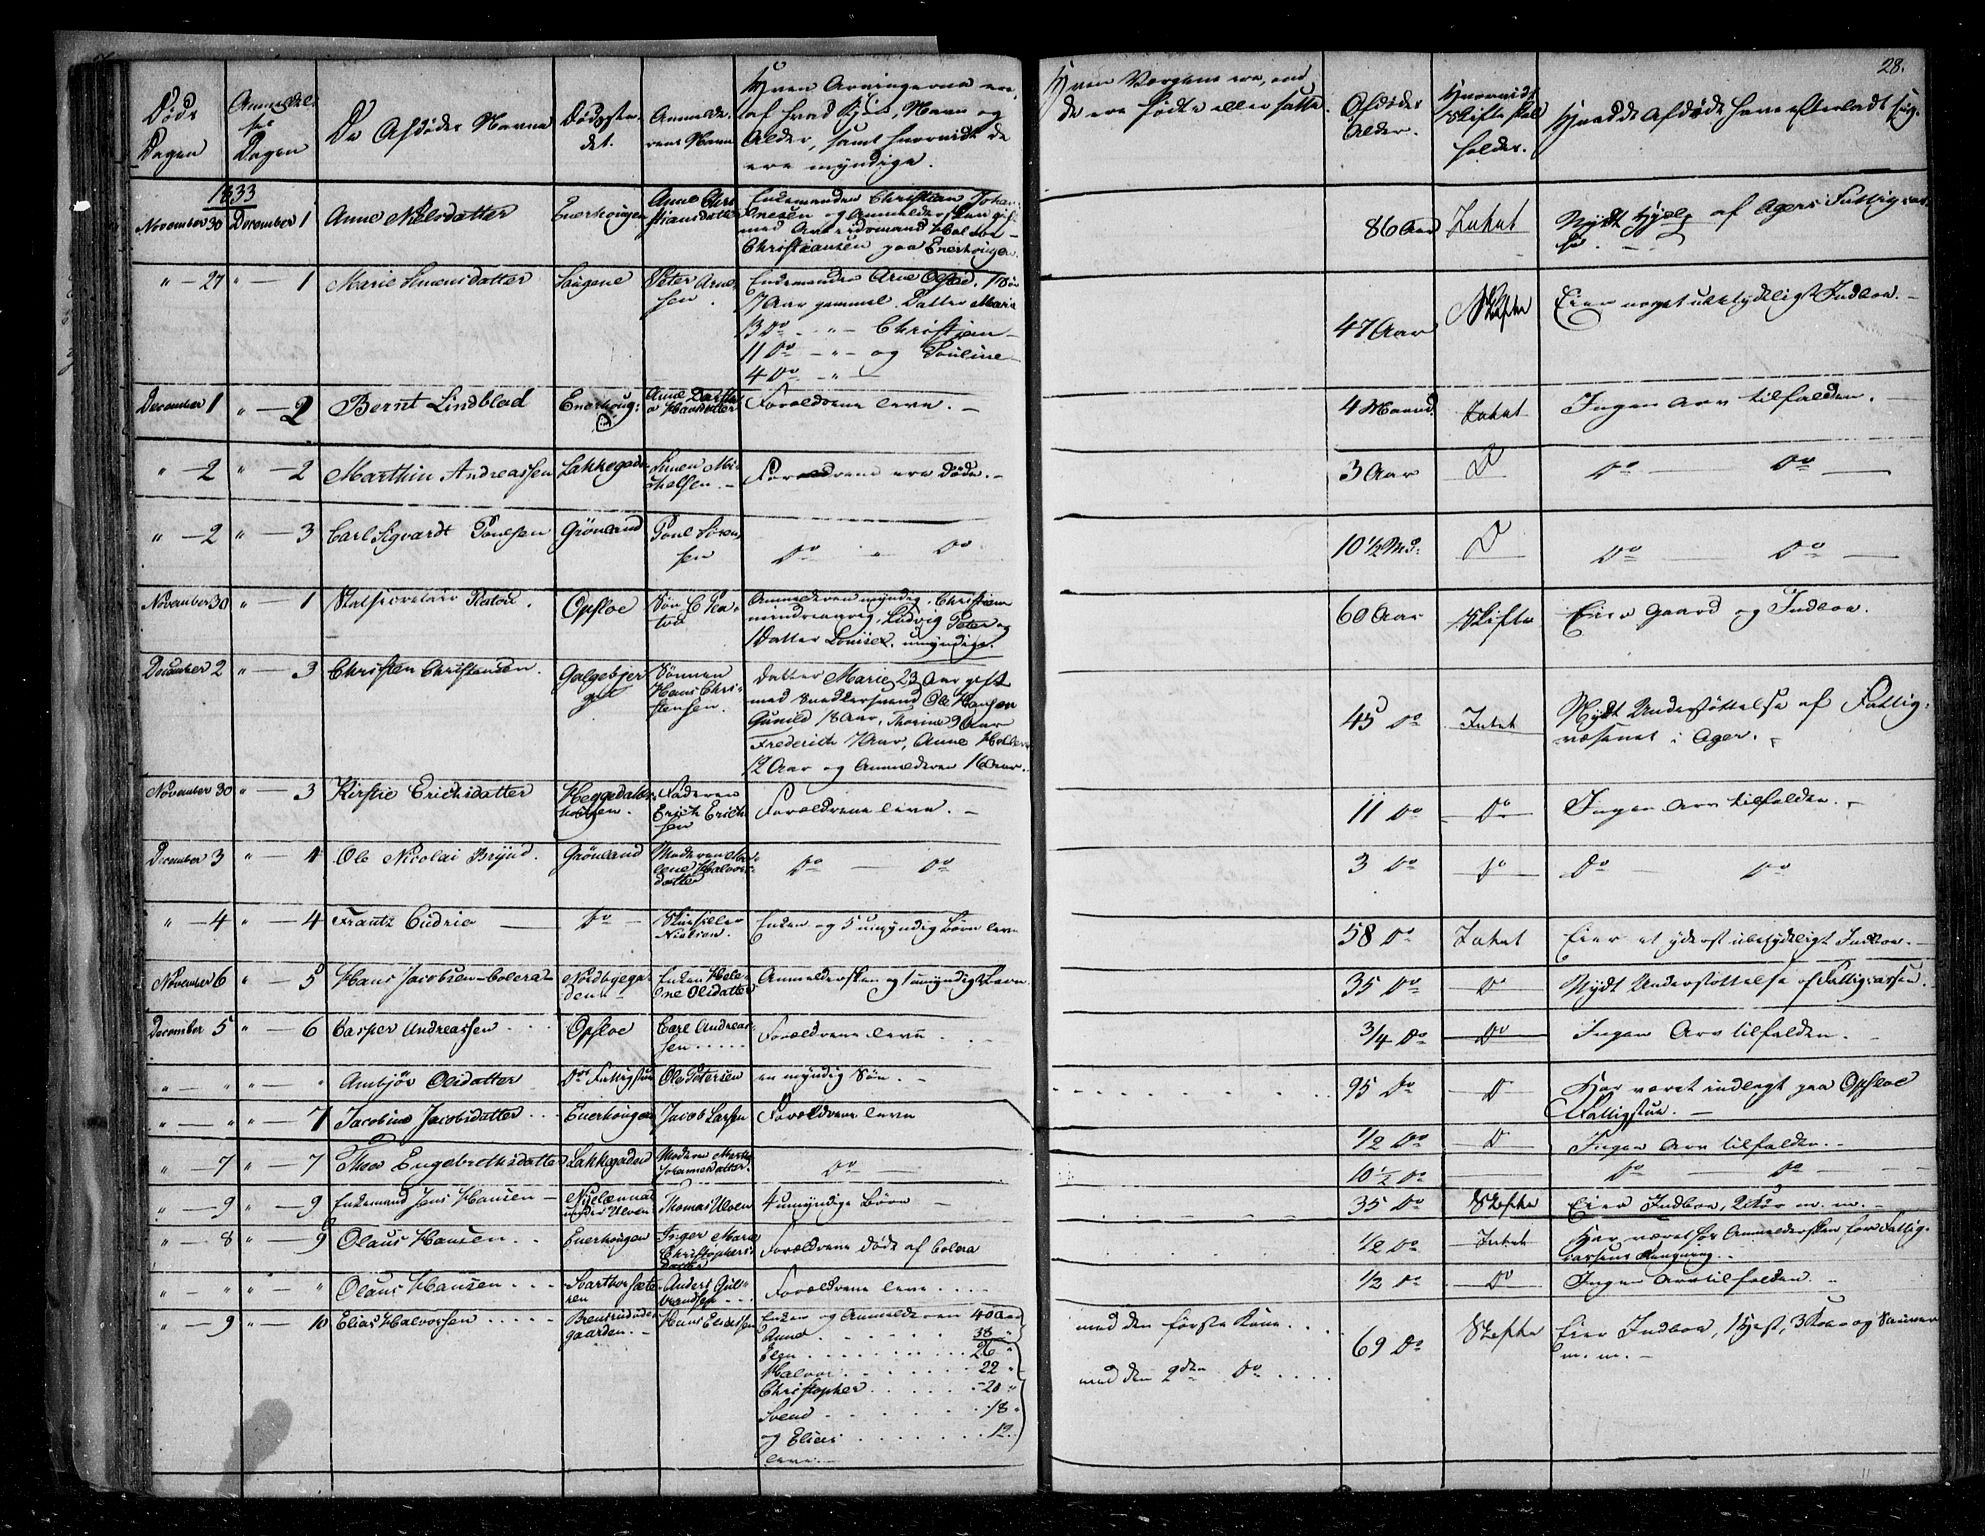 28.
Døds Dagen
Anmeldel: ses Dagen
De Afdødes Navne
Dødsste- det.
Anmelde- rens Navn
Hvem Arvingerne ere, af hvad Kjøn, Navn og Alder, samt hvorvidt de ere myndige.
Hvem Værgerne ere, naar de ere fødte eller satte.
Afdødes Alder.
Hvorvidt Skifte skal holdes.
Hvad de Afdøde have efterladt sig.
1833
November 30 December 1 Anne Nilsdatter Enerhougen Anne Chri stiansdatter Enkemanden Christian Johan- nesen og Anmeldersken gift med Arbeidsmand Halvor Christiansen paa Enerhougen. 86 Aar Intet Nydt Hjelp af Agers Fattigvæ- sen.
" — 27 " — 1 Marie Simensdatter Peter Arne sen. Enkemanden Arne Olsen. 1 Søn 7 Aar gammel. Datter Marie 13 Do " Christian 11 Do — " — og Pouline 4 Do — " — 47 Aar Skifte Eier noget ubetydeligt Indboe.
December 1 " — 2 Bernt Lindblad Enerhoug: Anne Hansdatter Forældrene leve. — 4 Maand. Intet Ingen Arv tilfalden.
" — 2 " — 2 Marthin Andreassen Lakkegade Simen Mi- chelsen. — Forældrene ere døde. — 3 Aar Do Do Do
" — 2 " — 3 Carl Sigvardt Poulsen Grönland Poul Sören sen Do " Do 10 ½ Md: Do Do Do
November 30 " — 1 Platou. Opsloe C Pla- tou Anmelderen myndig, Christian mindreaarig, Ludvig Peter og 1 Datter Louise, umyndige. 60 Aar Skifte Eier Gaard og Indboe.
December 2 " — 3 Christen Christensen. Galgebjer get Sönnen Hans Chri- stensen. Datter Marie 23 Aar gift med Snedkersvend Ole Hansen Gunild 18 Aar, Thorine 9 Aar Frederich 7 Aar, Anne 12 Aar og Anmelderen 16 Aar. 45 Do Intet Nydt Understøttelse af Fattig- væsenet i Ager.
November 30 " — 3 Kirstie Erichsdatter Heggedals- hougen. Faderen Erich Erich sen Forældrene leve. — 11 Do Do Ingen Arv tilfalden. —
December 3 " — 4 Ole Nicolai Brynd. Grönland Moderen Ma- lene Halvors- datter Do — Do 3 Do Do Do — Do
" — 4 " — 4 Frantz Cudrio Do — Nielsen. Enken og 5 umyndig Børn leve 58 Do Intet Eier et yderst ubetydeligt Indboe. —
November 6 " — 5 Hans Jacobsen — Colera — Nordbyega- den Enken Hele- ne Olsdatter Anmeldersken og 1 umyndigt Barn 35 Do Do Nydt Understøttelse af Fattigcassen.
December 5 " — 6 Casper Andreassen Opsloe Carl Andreas- sen Forældrene leve 3/4 Do Do Ingen Arv tilfalden. —
" — " " — " Ambjör Olsdatter Do Fattigstue Ole Petersen en myndig Søn. — 95 Do Do Har været indlagt paa Opsloe Fattigstue. —
" — " " — 7 Jacobine Jacobsdatter Enerhougen Jacob Larsen Forældrene leve 1/2 Do Do Ingen Arv tilfalden. —
" — 7 " — 7 Thea Engebretsdatter Lakkegaden Moderen Marthe Johannesdatter. Do — 10 ½ Do Do — Do —
" — 9 " — 9 Enkemand Jens Hansen — under Ulven Thomas Ulven 4 umyndige Børn — 35 Do Skifte Eier Indboe, 2 Køer m. m. —
" — 8 " — 9 Olaus Hansen Enerhougen Inger Marie Christophers- datter Forældrene døde af Colera 1/2 Do Intet Har været hos Anmeldersken for Fattig- cassens Regning.
" — " " — " Olaus Hansen Svarthorsæte- ren Anders Gul- brandsen Forældrene leve 1/2 Do Do Ingen Arv tilfalden.
" — 9 " — 10 Elias Halvorsen Brensrud- gaarden. Hans Eliassen Enken og Anmelderen 40 Aar med den første Kone 69 Do Skifte Eier Indboe, 1 Hest, 3 Køer og Sauer m. m. —
Anne 38 "
Elen 26 "
Halvor 22 " med den 2den Do
Christopher 20 "
Svend 18 "
og Elias 12.
leve. —